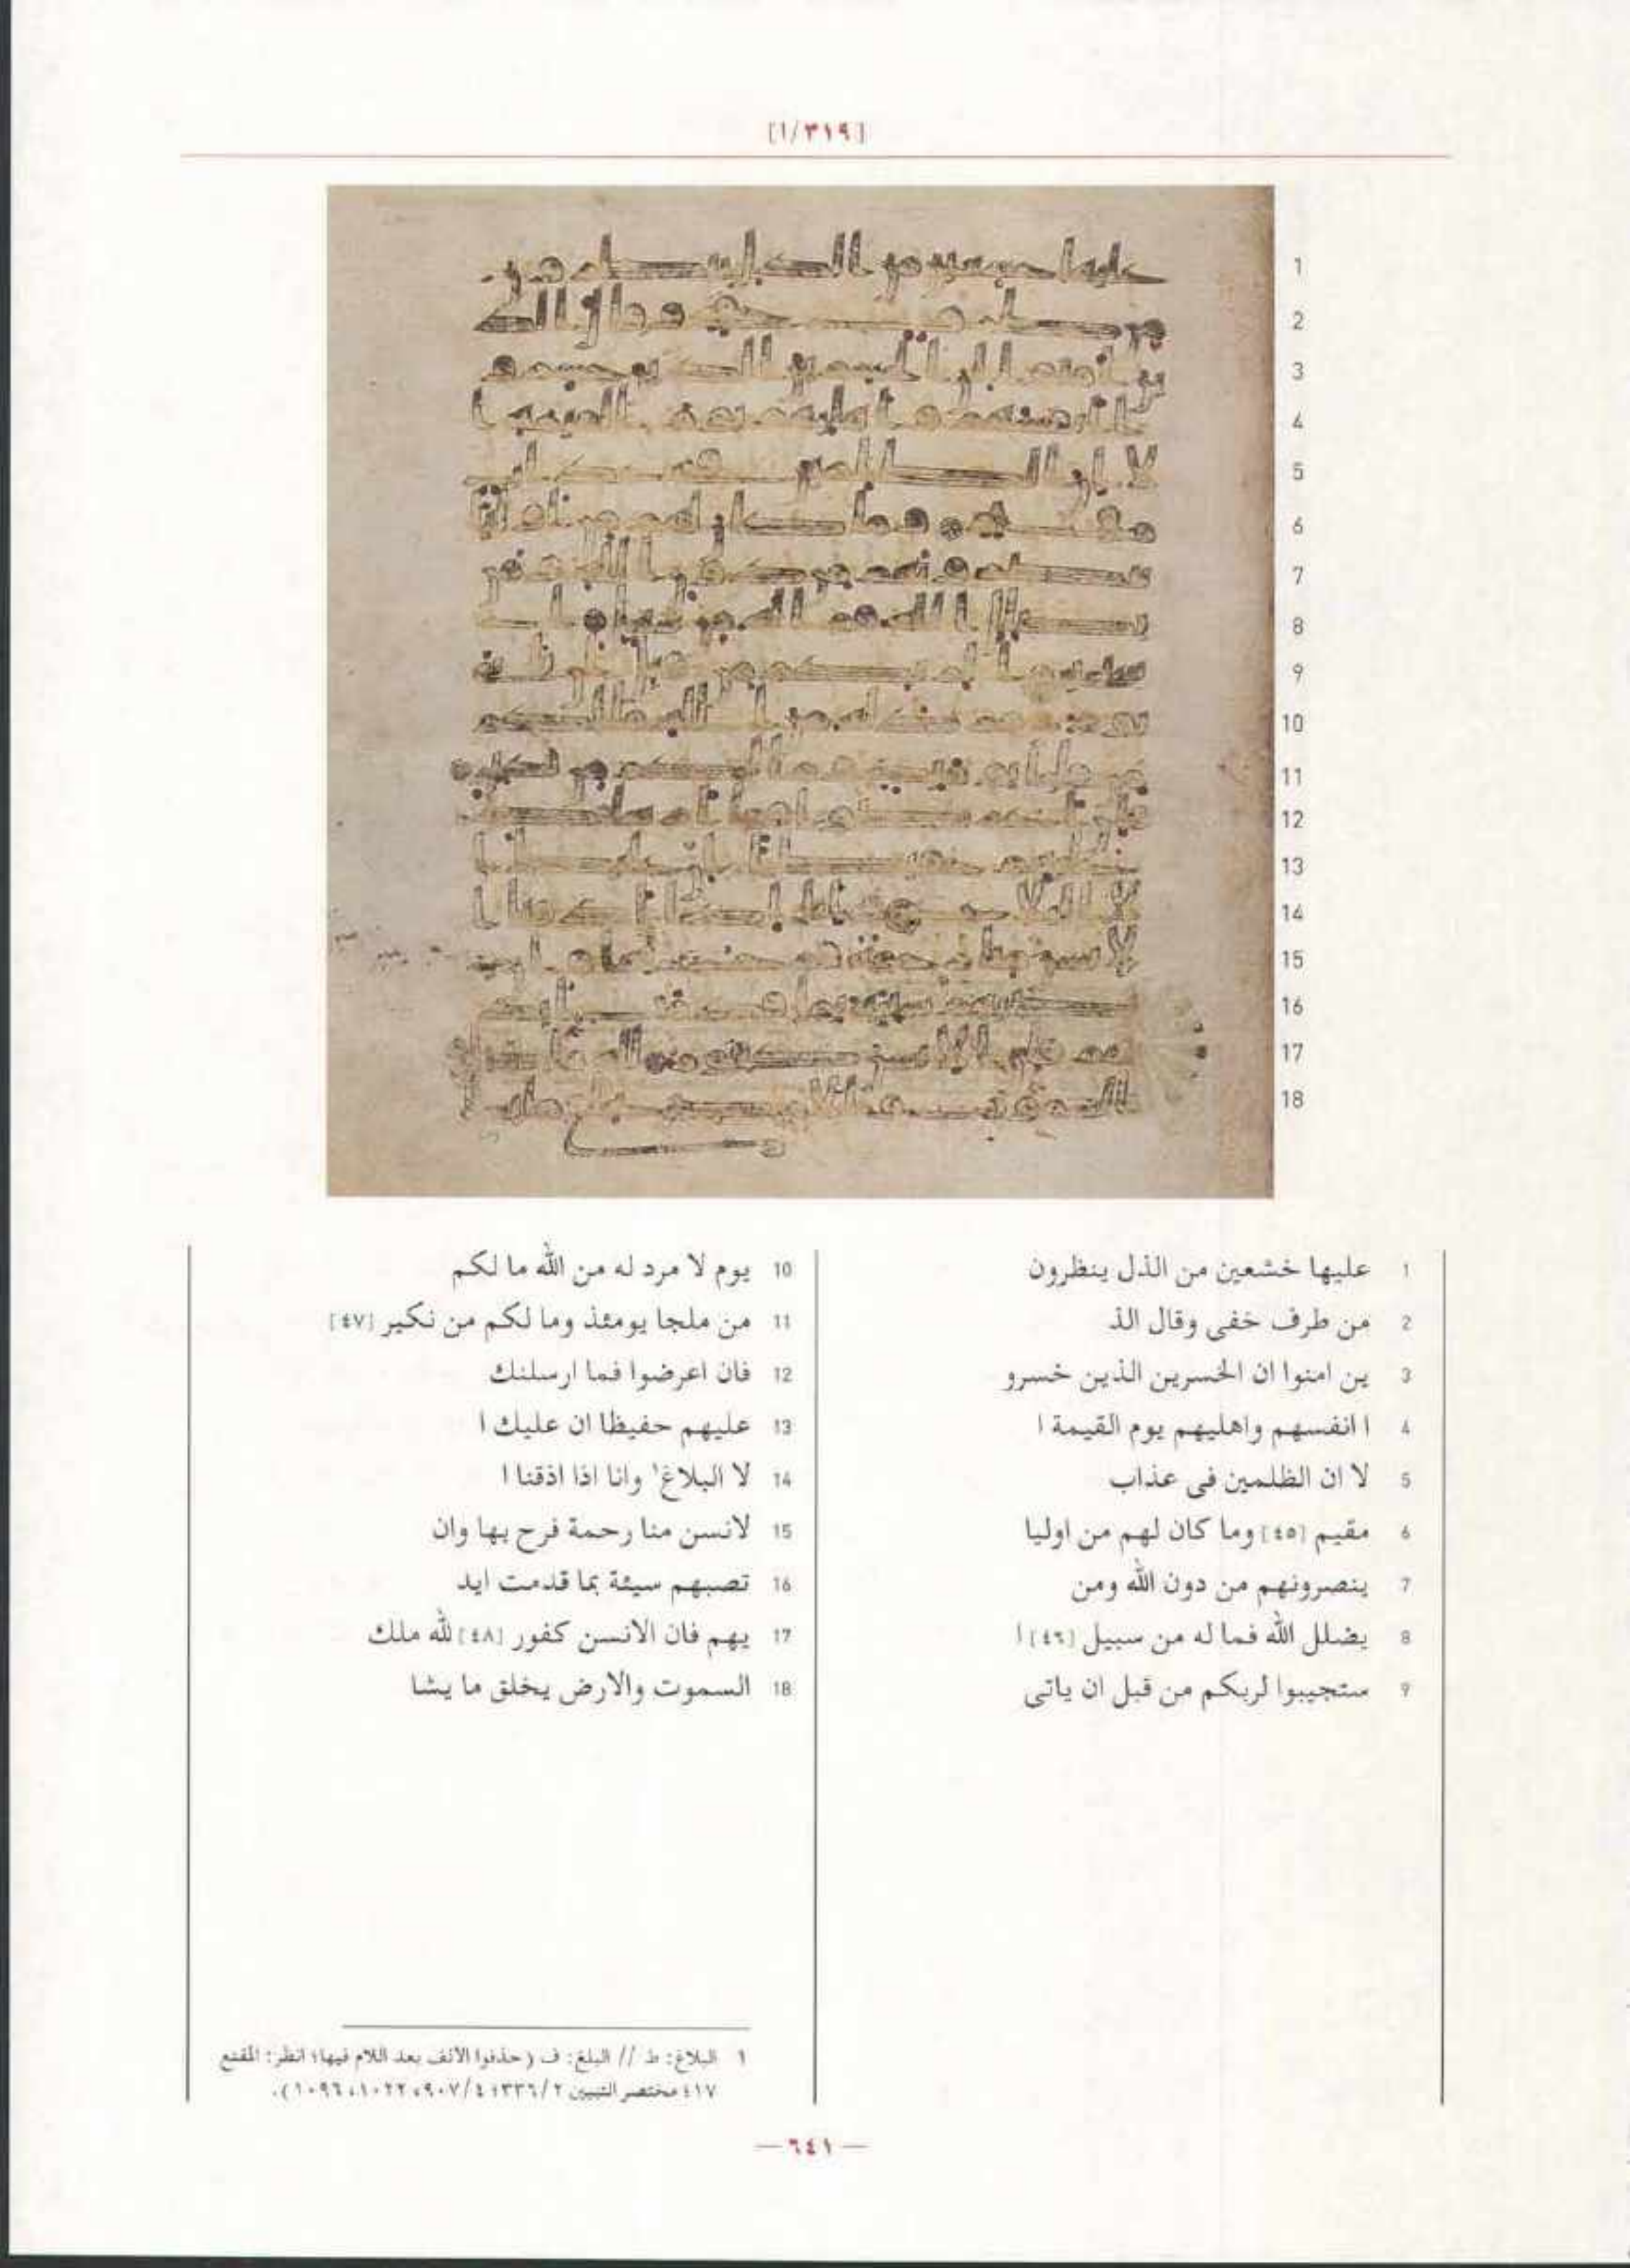 [١/٣١٩]
1
2
3
4
5
6
7
8
9
10
11
12
13
14
15
16
17
18
1 عليها خشعين من الذل ينظرون
2 من طرف خفى وقال الذ
3 ين امنوا ان الخسرين الذين خسرو
4 ا انفسهم واهليهم يوم القيمة ا
5 لا ان الظلمين فى عذاب
6 مقيم [٤٥] وما كان لهم من اوليا
7 ينصرونهم من دون الله ومن
8 يضلل الله فما له من سبيل [٤٦] ا
9 ستجيبوا لربكم من قبل ان ياتى
10 يوم لا مرد له من الله ما لكم
11 من ملجا يومئذ وما لكم من نكير [٤٧]
12 فان اعرضوا فما ارسلنك
13 عليهم حفيظا ان عليك ا
14 لا البلاغ¹ وانا اذا اذقنا ا
15 لانسن منا رحمة فرح بها وان
16 تصبهم سيئة بما قدمت ايد
17 يهم فان الانسن كفور [٤٨] لله ملك
18 السموت والارض يخلق ما يشا
١ البلاغ: ط // البلغ: ف (حذفوا الالف بعد اللام فيها؛ انظر: المقنع
٤١٧ مختصر التبيين ٣٣٦/٢؛ ٩٠٧/٤، ١٠٢٢، ١٠٩٦).
— ٦٤١ —